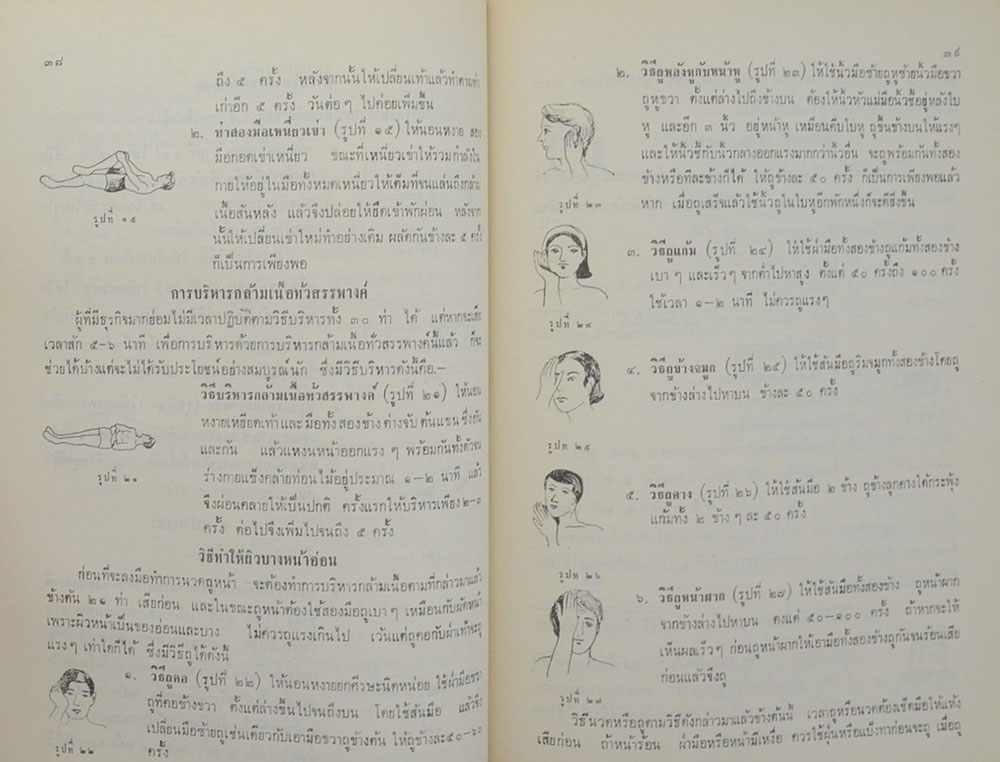 ๓๘
ถึง ๕ ครั้ง หลังจากนั้นให้เปลี่ยนเท้าแล้วทำตามท่า
เก่าอีก ๕ ครั้ง วันต่อๆ ไปค่อยเพิ่มขึ้น
๒. ท่าสองมือเหนี่ยวเข่า (รูปที่ ๑๕) ให้นอนหงาย สอง
มือกอดเข่าเหนี่ยว ขณะที่เหนี่ยวเข่าให้รวมกำลังใน
กายให้อยู่ในมือทั้งหมดเหนี่ยวให้เต็มที่จนแล่นถึงกล้าม
เนื้อสันหลัง แล้วจึงปล่อยให้ยืดเข้าพักผ่อน หลังจาก
นั้นให้เปลี่ยนเข่าใหม่ทำอย่างเดิม ผลัดกันข้างละ ๕ ครั้ง
ก็เป็นการเพียงพอ
รูปที่ ๑๕
การบริหารกล้ามเนื้อทั่วสรรพางค์
ผู้ที่มีธุรกิจมากย่อมไม่มีเวลาปฏิบัติตามวิธีบริหารทั้ง ๓๐ ท่า ได้ แต่หากจะเสีย
เวลาสัก ๕-๖ นาที เพื่อการบริหารด้วยการบริหารกล้ามเนื้อทั่วสรรพางค์นี้แล้ว ก็จะ
ช่วยได้บ้างแต่จะไม่ได้รับประโยชน์อย่างสมบูรณ์นัก ซึ่งมีวิธีบริหารดังนี้คือ.–
วิธีบริหารกล้ามเนื้อทั่วสรรพางค์ (รูปที่ ๒๑) ให้นอน
หงายเหยียดเท้าและมือทั้งสองข้าง ต่างจับ ต้นแขน ซึ่งกัน
และกัน แล้วแหงนหน้าออกแรง ๆ พร้อมกันทั้งตัวจน
ร่างกายแข็งคล้ายท่อนไม้อยู่ประมาณ ๑–๒ นาที แล้ว
จึงผ่อนคลายให้เป็นปกติ ครั้งแรกให้บริหารเพียง ๒-๓
ครั้ง ต่อไปจึงเพิ่มไปจนถึง ๕ ครั้ง
รูปที่ ๒๑
วิธีทำให้ผิวบางหน้าอ่อน
ก่อนที่จะลงมือทำการนวดถูหน้า จะต้องทำการบริหารกล้ามเนื้อตามที่กล่าวมาแล้ว
ข้างต้น ๒๑ ท่า เสียก่อน และในขณะถูหน้าต้องใช้สองมือถูเบา ๆ เหมือนกับผัดหน้า
เพราะผิวหน้าเป็นของอ่อนและบาง ไม่ควรถูแรงเกินไป เว้นแต่ถูคอกับฝ่าเท้าจะถู
แรง ๆ เท่าใดก็ได้ ซึ่งมีวิธีถูได้ดังนี้
๑. วิธีถูคอ (รูปที่ ๒๒) ให้นอนหงายยกศีรษะนิดหน่อย ใช้ฝ่ามือขวา
ถูที่คอข้างขวา ตั้งแต่ล่างขึ้นไปจนถึงบน โดยใช้สันมือ แล้วจึง
เปลี่ยนมือซ้ายถูเช่นเดียวกับเอามือขวาถูข้างต้น ให้ถูข้างละ ๕๐–๖๐
ครั้ง
รูปที่ ๒๒
๓๙
๒. วิธีถูหลังหูกับหน้าหู (รูปที่ ๒๓) ให้ใช้นิ้วมือซ้ายถูหูซ้ายนิ้วมือขวา
ถูหูขวา ตั้งแต่ล่างไปถึงข้างบน ต้องให้นิ้วหัวแม่มือนิ้วชี้อยู่หลังใบ
หู และอีก ๓ นิ้ว อยู่หน้าหู เหมือนคีบใบหู ถูขึ้นข้างบนให้แรงๆ
และให้นิ้วชี้กับนิ้วกลางออกแรงมากกว่านิ้วอื่น จะถูพร้อมกันทั้งสอง
ข้างหรือทีละข้างก็ได้ ให้ถูข้างละ ๕๐ ครั้ง ก็เป็นการเพียงพอแล้ว
หาก เมื่อถูเสร็จแล้วใช้นิ้วถูในใบหูอีกพักหนึ่งก็จะดียิ่งขึ้น
รูปที่ ๒๓
๓. วิธีถูแก้ม (รูปที่ ๒๔) ให้ใช้ฝ่ามือทั้งสองข้างถูแก้มทั้งสองข้าง
เบา ๆ และเร็วๆ จากต่ำไปหาสูง ตั้งแต่ ๕๐ ครั้งถึง ๑๐๐ ครั้ง
ใช้เวลา ๑–๒ นาที ไม่ควรถูแรงๆ
รูปที่ ๒๔
๔. วิธีถูข้างจมูก (รูปที่ ๒๕) ให้ใช้สันมือถูริมจมูกทั้งสองข้างโดยถู
จากข้างล่างไปหาบน ข้างละ ๕๐ ครั้ง
รูปที่ ๒๕
๕. วิธีถูคาง (รูปที่ ๒๖) ให้ใช้สันมือ ๒ ข้าง ถูข้างลูกคางใต้กระพุ้ง
แก้มทั้ง ๒ ข้าง ๆ ละ ๕๐ ครั้ง
รูปที่ ๒๖
๖. วิธีถูหน้าผาก (รูปที่ ๒๗) ให้ใช้สันมือทั้งสองข้าง ถูหน้าผาก
จากข้างล่างไปหาบน ตั้งแต่ ๕๐–๑๐๐ ครั้ง ถ้าหากจะให้
เห็นผลเร็วๆ ก่อนถูหน้าผากให้เอามือทั้งสองข้างถูกันจนร้อนเสีย
ก่อนแล้วจึงถู
รูปที่ ๒๗
วิธีนวดหรือถูตามวิธีดังกล่าวมาแล้วข้างต้นนี้ เวลาถูหรือนวดต้องเช็ดมือให้แห้ง
เสียก่อน ถ้าหน้าร้อน ฝ่ามือหรือหน้ามีเหงื่อ ควรใช้ฝุ่นหรือแป้งทาก่อนจะถู เมื่อถู